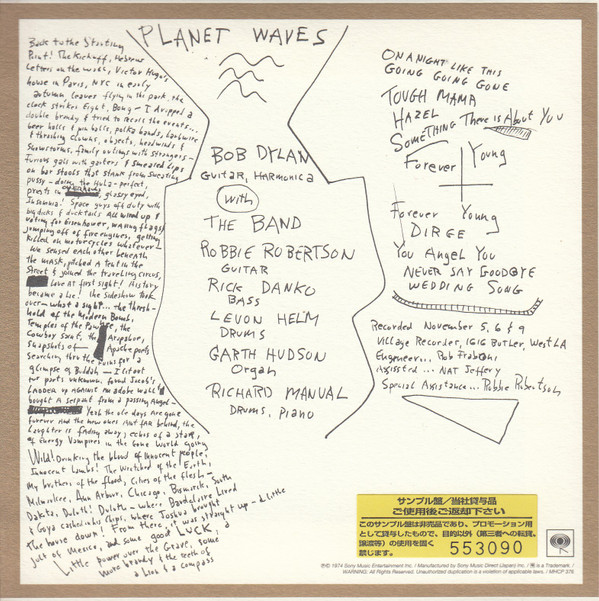 PLANET WAVES
Back to the Starting
Point! The Kickoff, Hebrew
letters on the wall, Victor Hugo's
house in Paris, NYC in early
autumn, leaves flying in the park, the
clock strikes Eight, Bong - I dropped a
double brandy & tried to recall the events...
beer halls & pin balls, polka bands, barbwire
& thrashing clowns, objects, headwinds &
snowstorms, family outings with strangers -
Furious gals with garters & smeared lips
on bar stools that stank from sweating
pussy - doing the Hula - perfect,
priests in overhauls, glassy eyed,
Insomnia! Space guys off duty with
big dicks & ducktails All wired up &
voting for Eisenhower, waving flags &
jumping off of fire engines, getting
killed on motorcycles whatever -
We sensed each other beneath
the mask, pitched a tent in the
street & joined the traveling circus,
Love at first sight! History
became a lie! the sideshow took
over - what a sight... the thresh-
hold of the Modern Bomb,
Temples of the Pawnee, the
Cowboy Saint, the Arapahoe,
snapshots of Apache poets
searching thru the ruins for a
glimpse of Buddah - I lit out
for parts unknown, found Jacob's
Ladder up against an adobe wall &
bought a serpent from a passing Angel -
Yeah the ole days are gone
forever and the new ones Not far behind, the
Laughter is fading away, echos of a star,
of Energy Vampires in the Gone World going
Wild! Drinking the blood of innocent people,
Innocent Lambs! The Wretched of the Earth,
My brothers of the flood, Cities of the flesh -
Milwaukee, Ann Arbor, Chicago, Bismarck, South
Dakota, Duluth! Duluth - where Baudelaire Lived
& Goya cashed in his Chips, where Joshua brought
the house down! From there, it was straight up - a little
jolt of Mexico, and some good LUCK, a
Little power over the Grave, some
more brandy & the teeth of
a Lion & a compass
BOB DYLAN
GUITAR, HARMONICA
With
THE BAND
ROBBIE ROBERTSON
GUITAR
RICK DANKO
BASS
LEVON HELM
DRUMS
GARTH HUDSON
Organ
RICHARD MANUAL
DRUMS, PIANO
ON A NIGHT LIKE THIS
GOING GOING GONE
TOUGH MAMA
HAZEL
SOMETHING There is About You
Forever Young
Forever Young
DIRGE
You Angel You
NEVER SAY GOODBYE
WEDDING SONG
Recorded November 5, 6 & 9
Village Recorder, 1616 Butler, West LA
Engeneer... Rob Fraboni
Assisted... NAT Jeffery
Special Assistance... Robbie Robertson
サンプル盤/当社貸与品
ご使用後ご返却下さい
このサンプル盤は非売品であり、プロモーション用
として貸与したもので、目的以外(第三者への転貸、
譲渡等)の使用を固く
禁じます。
553090
℗© 1974 Sony Music Entertainment Inc. / Manufactured by Sony Music Direct (Japan) Inc. / is a Trademark. /
WARNING: All Rights Reserved. Unauthorized duplication is a violation of applicable laws. / MHCP 376